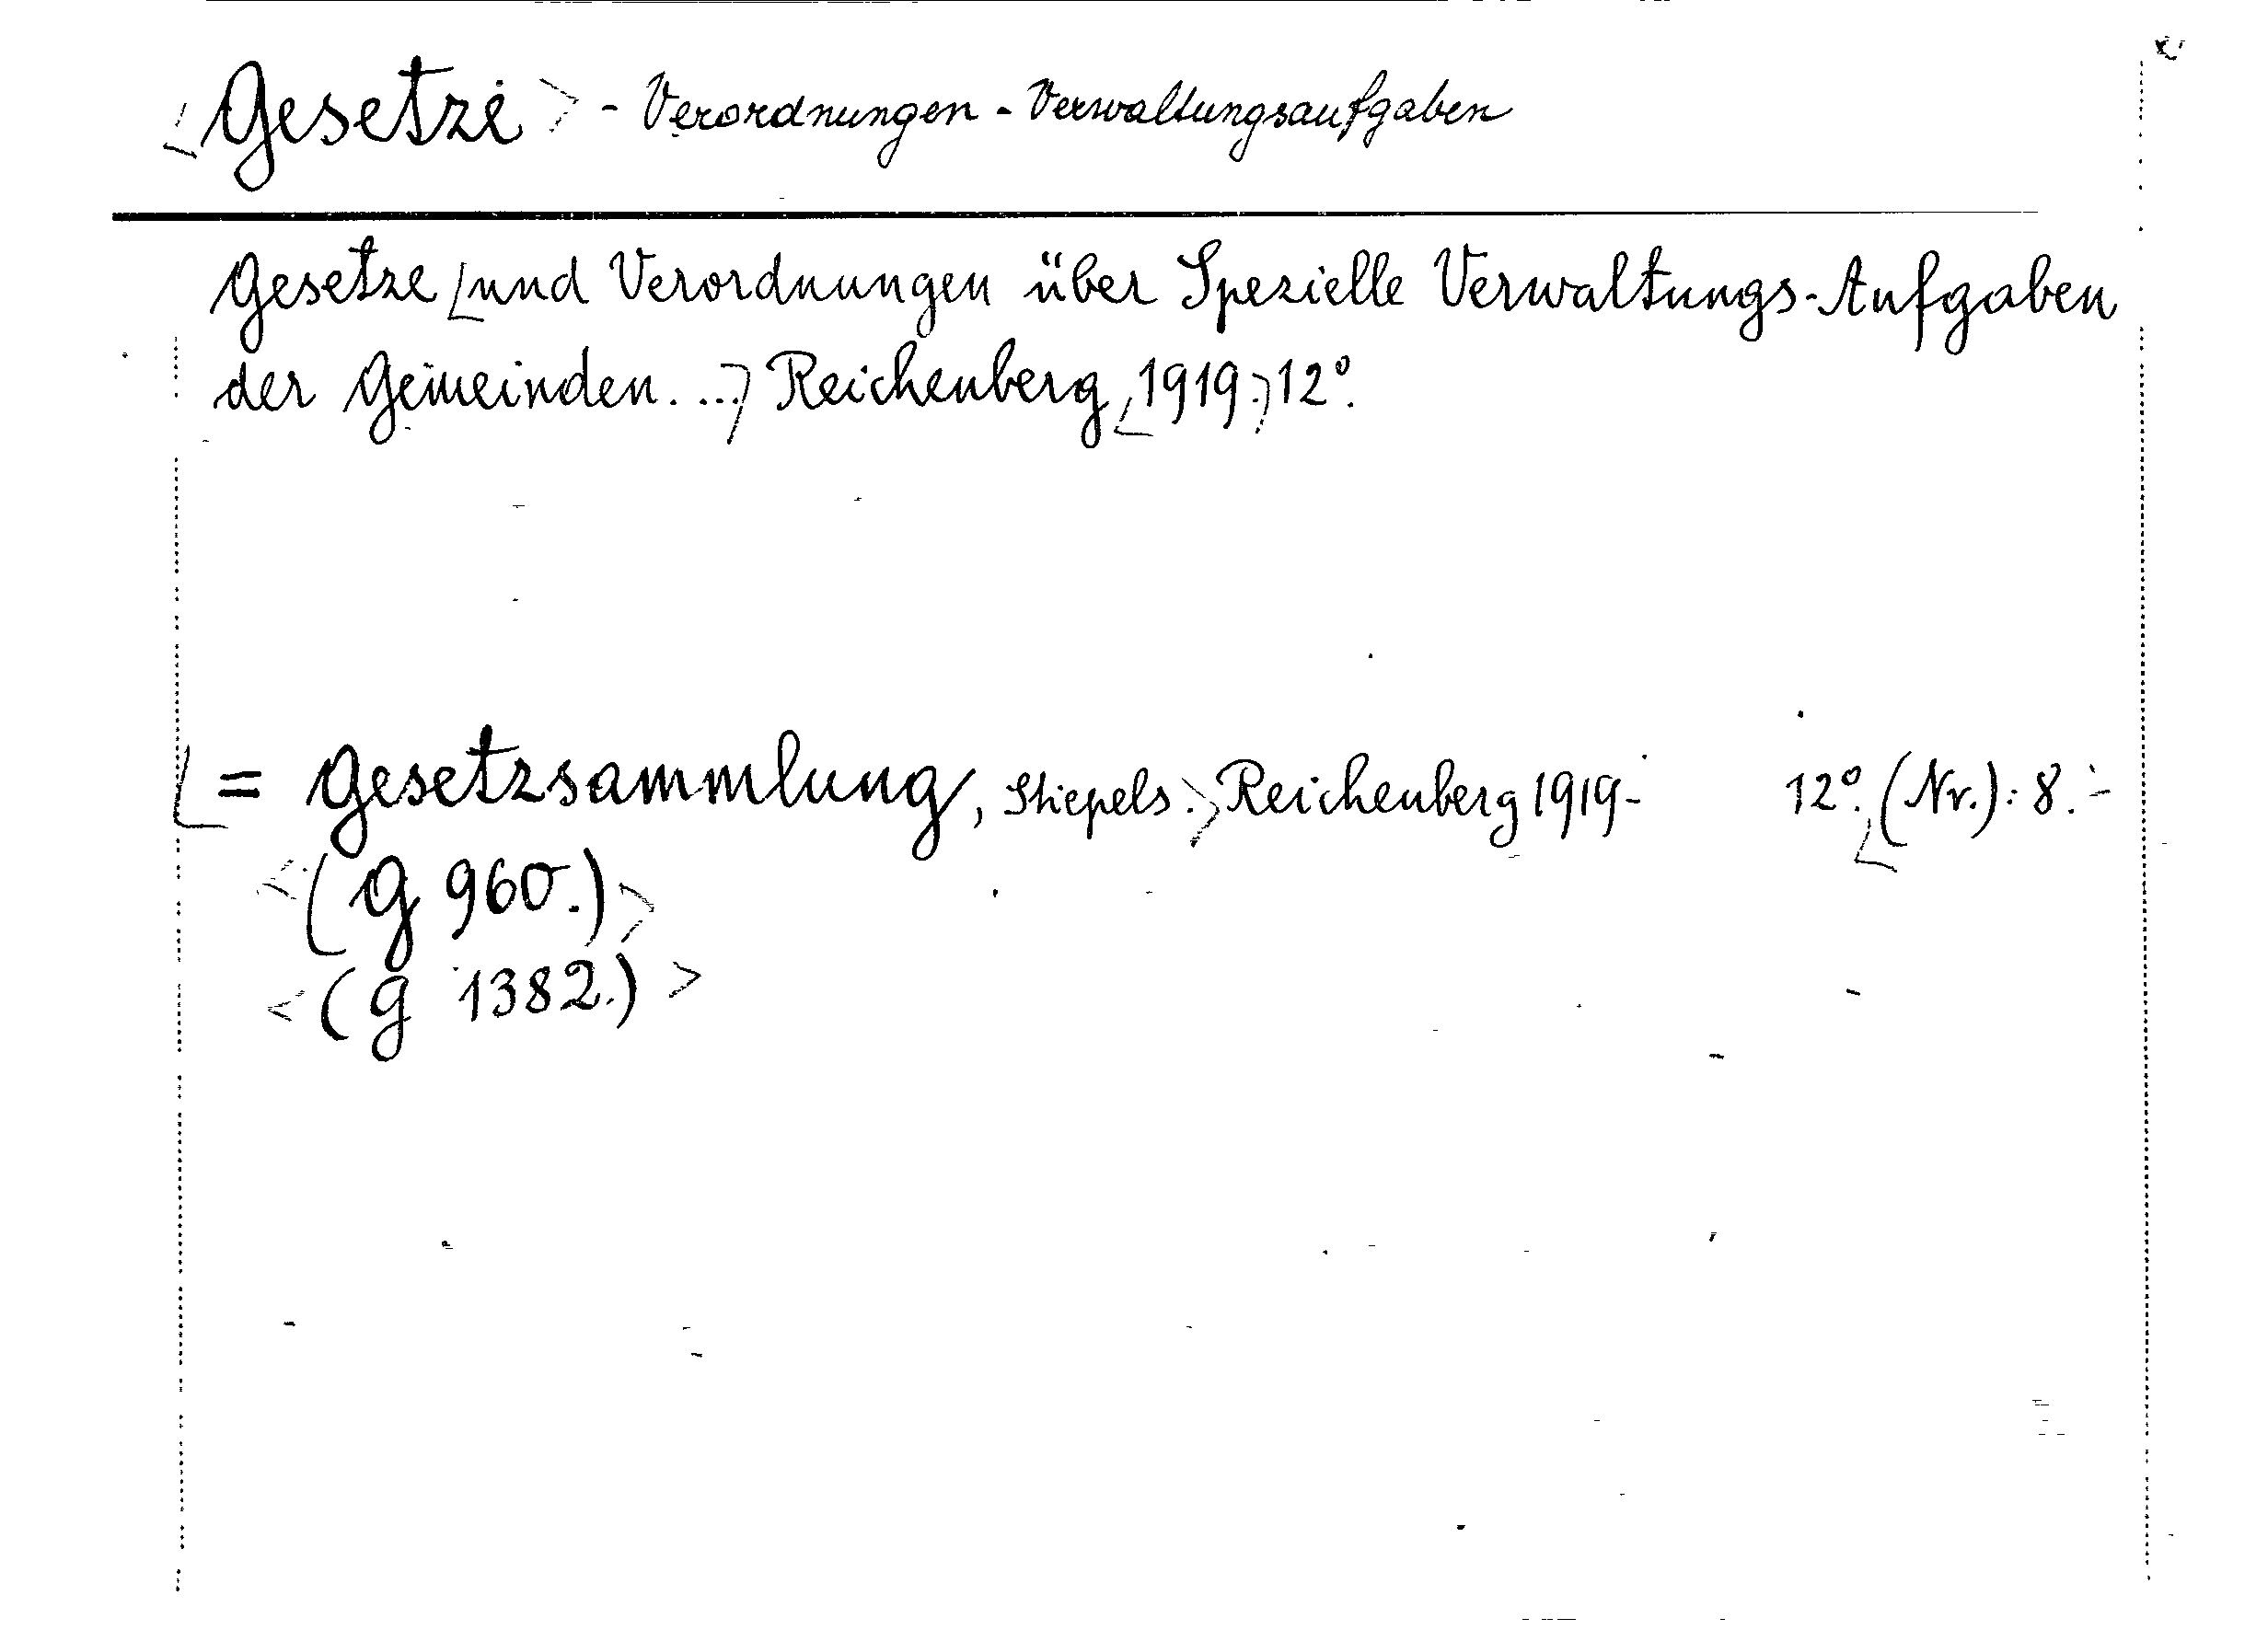 <Gesetze> - Verordnungen - Verwaltungsaufgaben
Gesetze [und Verordnungen über Spezielle Verwaltungs-Aufgaben
der Gemeinden. ...] Reichenberg [1919.] 12°.
[= Gesetzsammlung, Stiepels.> Reichenberg 1919- 12°. [(Nr.): 8.-
<(G 960.)>
<(G 1382.)>